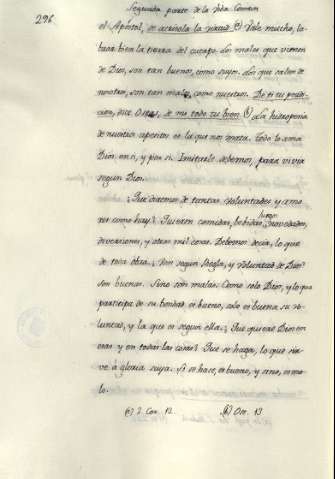 296
Segunda parte de la Vida Comun
el Apóstol, se acrisola la virtud. (a) Vale mucho, la-
brar bien la tierra del cuerpo. Los males que vienen
de Dios, son tan buenos, como suyos. Los que salen de
nosotros, son tan malos, como nuestros. De ti tu perdi-
cion, dice Oseas, de mi todo tu bien (b) La hidropesia
de nuestros apetitos es la que nos mata. Todo lo ama
Dios en si, y por si. Imitarle debemos, para vivir
segun Dios.
¿Que diremos de tantas voluntades y amo-
res como hay? Quieren comidas, bebidas, lujos, suavidades,
diversiones, y otras mil cosas. Debemos decir, lo que
de toda obra. ¿Son segun Regla, y Voluntad de Dios?
son buenas. Sino son malas. Como solo Dios, y lo que
participa de su bondad es bueno, solo es buena su vo-
luntad, y la que es segun ella. ¿Que quiere Dios en
esas y en todas las cosas? Que se haga, lo que sir-
ve á gloria suya. Si se hace, es bueno, y sino, es ma-
lo.
(a) 2. Cor. 12. (b) Ose. 13